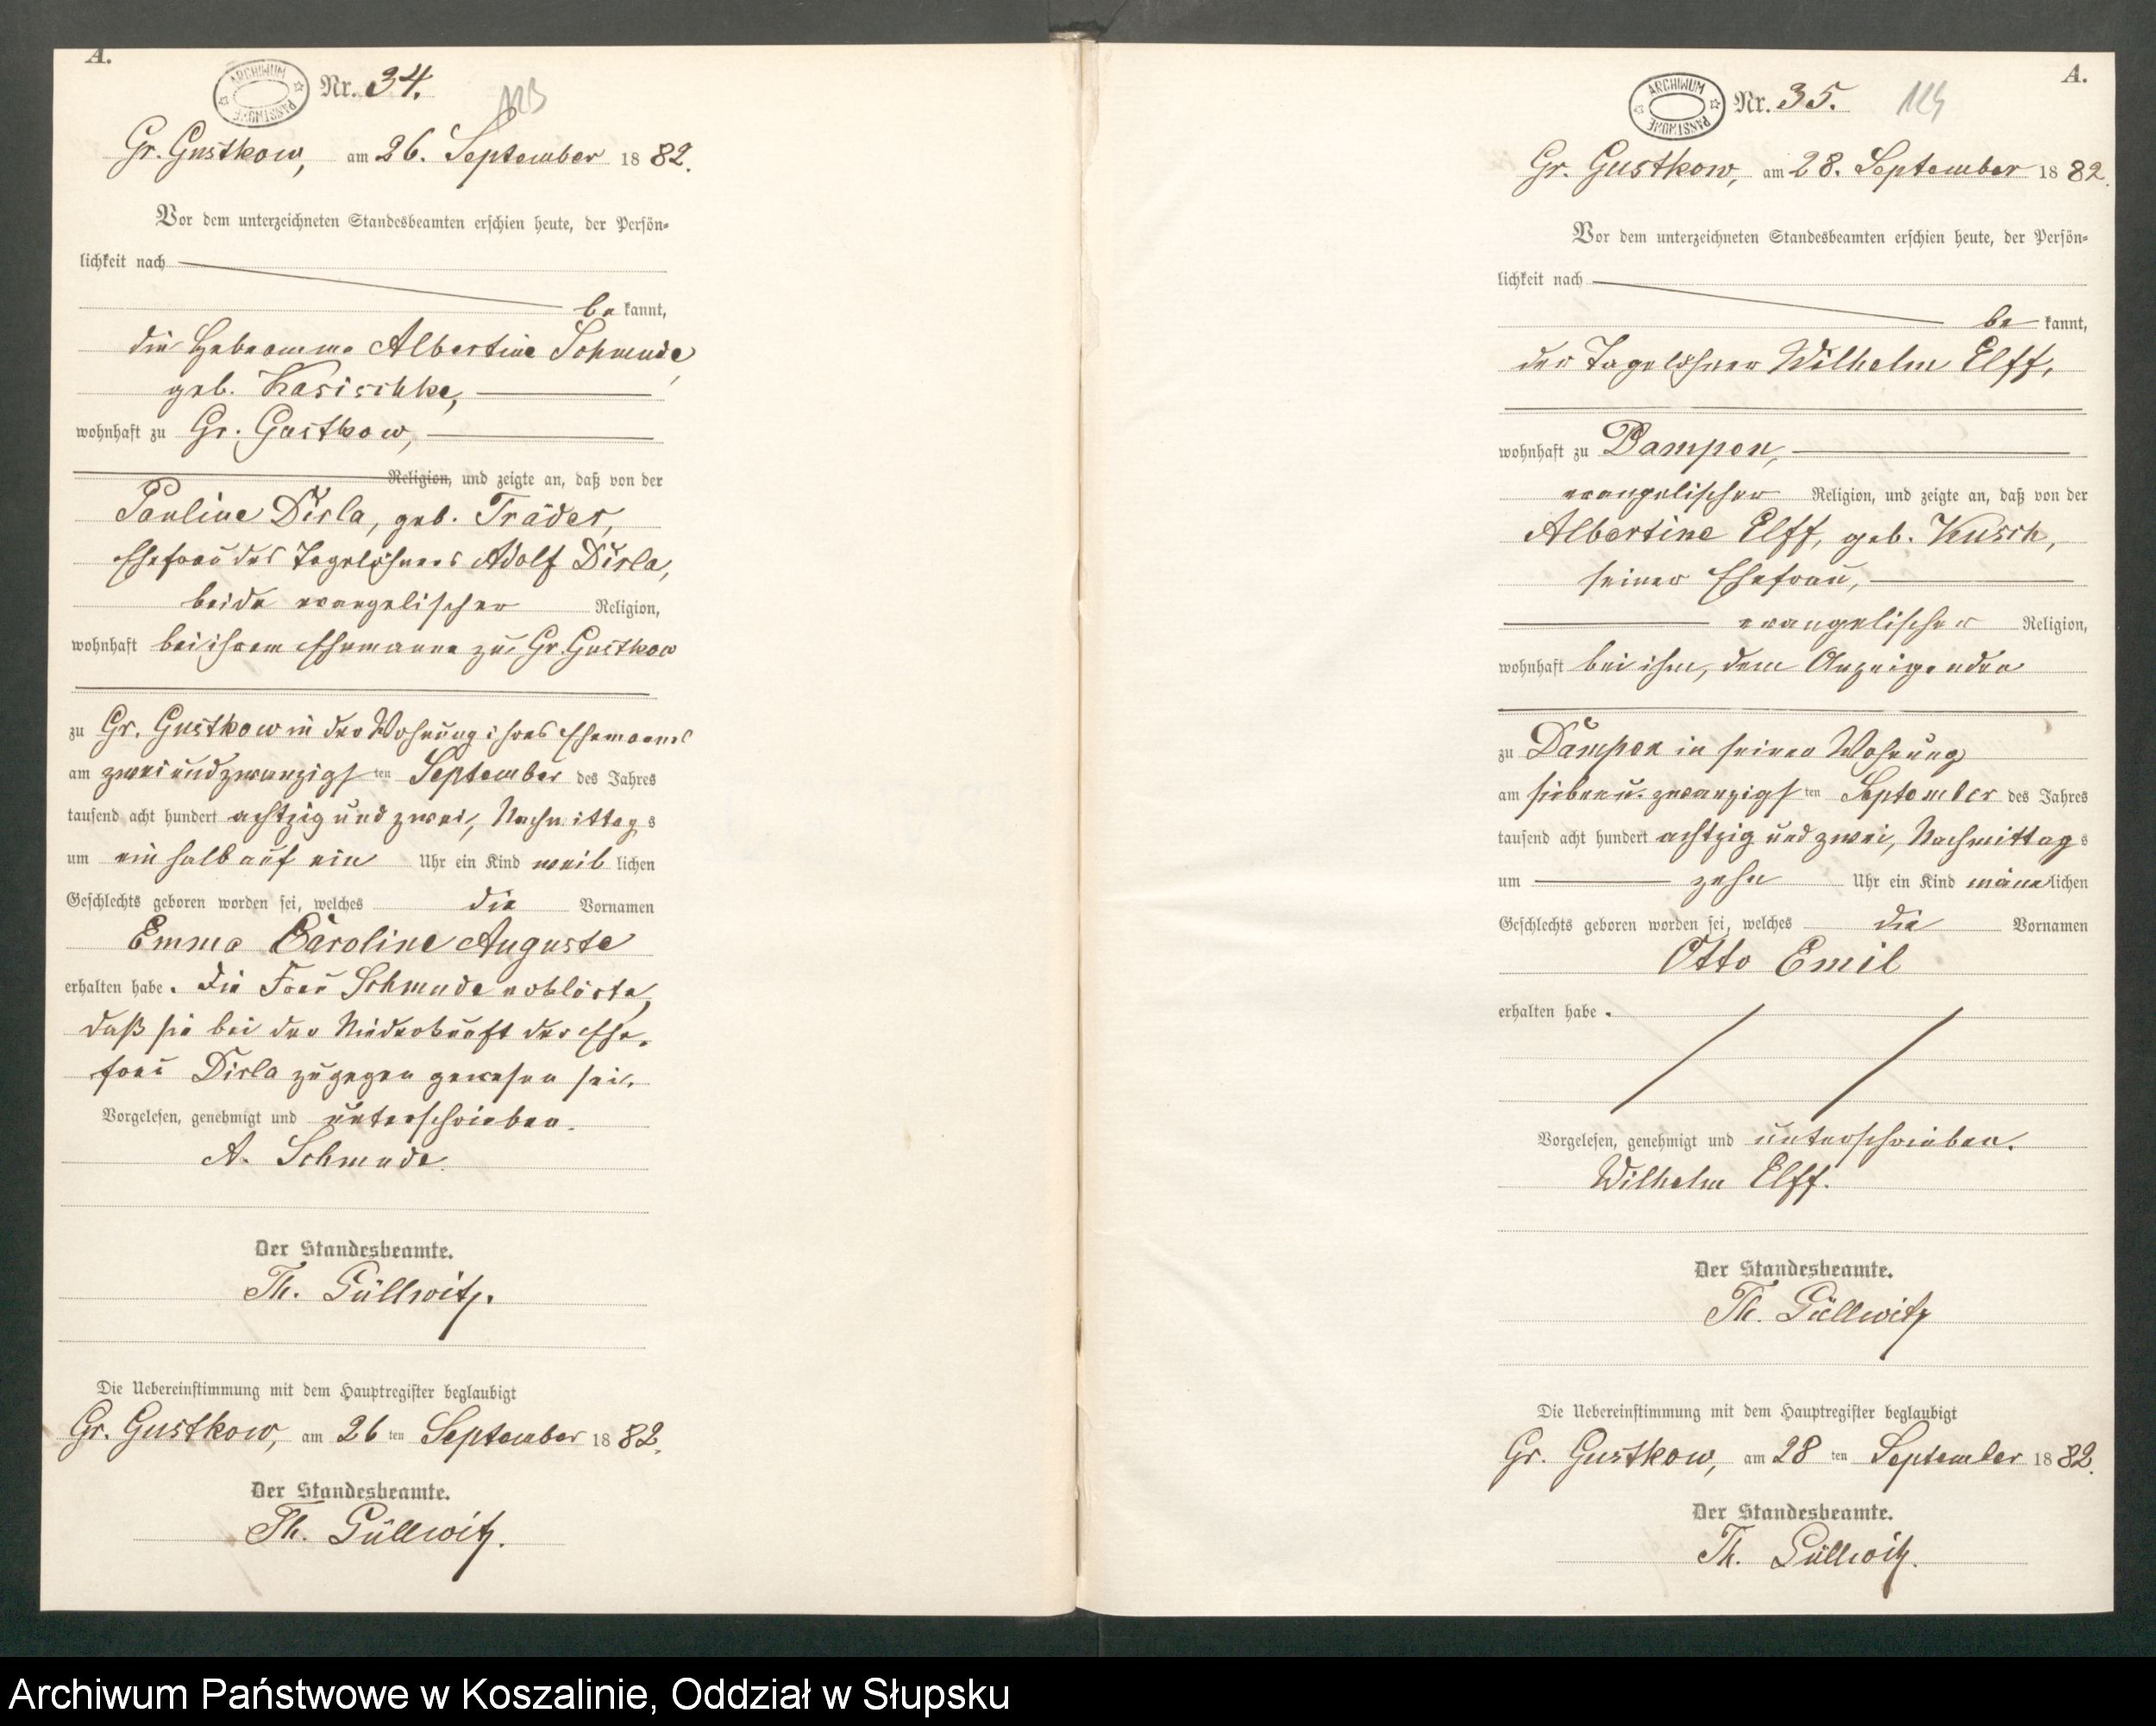 A.
ARCHIWUM PAŃSTWOWE
Nr. 34.
123
Gr. Gustkow, am 26. September 1882.
Vor dem unterzeichneten Standesbeamten erschien heute, der Persön-
lichkeit nach
bekannt,
die Hebeamme Albertine Schmude,
geb. Kasischke,
wohnhaft zu Gr. Gustkow,
Religion, und zeigte an, daß von der
Pauline Dirla, geb. Träder,
Ehefrau des Tagelöhners Adolf Dirla,
beide evangelischer Religion,
wohnhaft bei ihrem Ehemanne zu Gr. Gustkow
zu Gr. Gustkow in der Wohnung ihres Ehemannes
am zweiundzwanzigsten September des Jahres
tausend acht hundert achtzig und zwei, Nachmittags
um ein halb auf ein Uhr ein Kind weiblichen
Geschlechts geboren worden sei, welches die Vornamen
Emma Caroline Auguste
erhalten habe. Die Frau Schmude erklärte,
daß sie bei der Niederkunft der Ehe-
frau Dirla zugegen gewesen sei.
Vorgelesen, genehmigt und unterschrieben.
A. Schmude
Der Standesbeamte.
Th. Güllwitz.
Die Uebereinstimmung mit dem Hauptregister beglaubigt
Gr. Gustkow, am 26ten September 1882.
Der Standesbeamte.
Th. Güllwitz.
A.
ARCHIWUM PAŃSTWOWE
Nr. 35.
124
Gr. Gustkow, am 28. September 1882.
Vor dem unterzeichneten Standesbeamten erschien heute, der Persön-
lichkeit nach
bekannt,
der Tagelöhner Wilhelm Elff,
wohnhaft zu Dampen,
evangelischer Religion, und zeigte an, daß von der
Albertine Elff, geb. Kusch,
seiner Ehefrau,
evangelischer Religion,
wohnhaft bei ihm, dem Anzeigenden
zu Dampen in seiner Wohnung
am sieben u. zwanzigsten September des Jahres
tausend acht hundert achtzig und zwei, Nachmittags
um zehn Uhr ein Kind männlichen
Geschlechts geboren worden sei, welches die Vornamen
Otto Emil
erhalten habe.
Vorgelesen, genehmigt und unterschrieben.
Wilhelm Elff.
Der Standesbeamte.
Th. Güllwitz
Die Uebereinstimmung mit dem Hauptregister beglaubigt
Gr. Gustkow, am 28ten September 1882.
Der Standesbeamte.
Th. Güllwitz.
Archiwum Państwowe w Koszalinie, Oddział w Słupsku